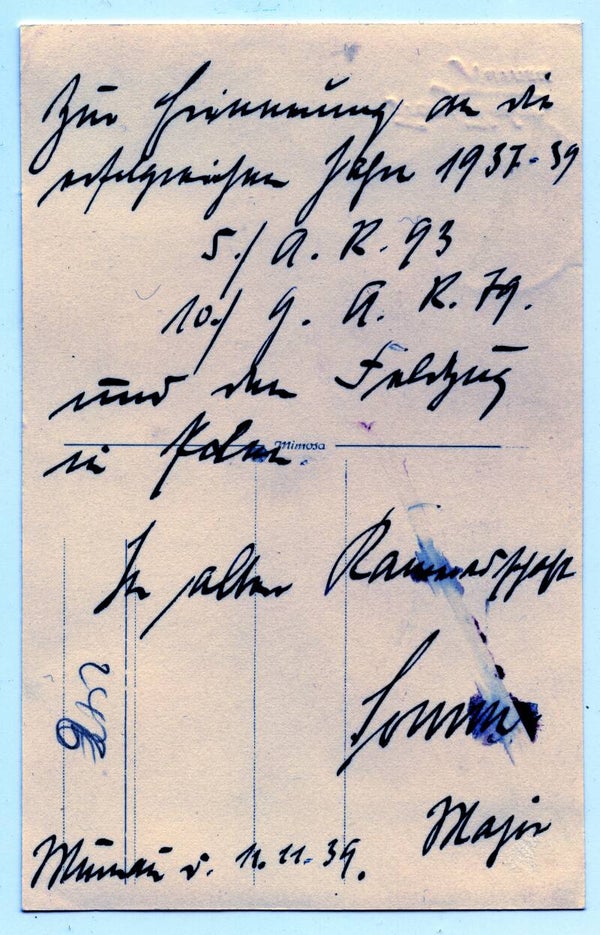 Zur Erinnerung an die
erfolgreichen Jahre 1937-39
5./ A. R. 93
10./ G. A. R. 79.
und den Feldzug
Mimosa
in Polen.
In alter Kameradschaft
Major
d. 11.11.39.